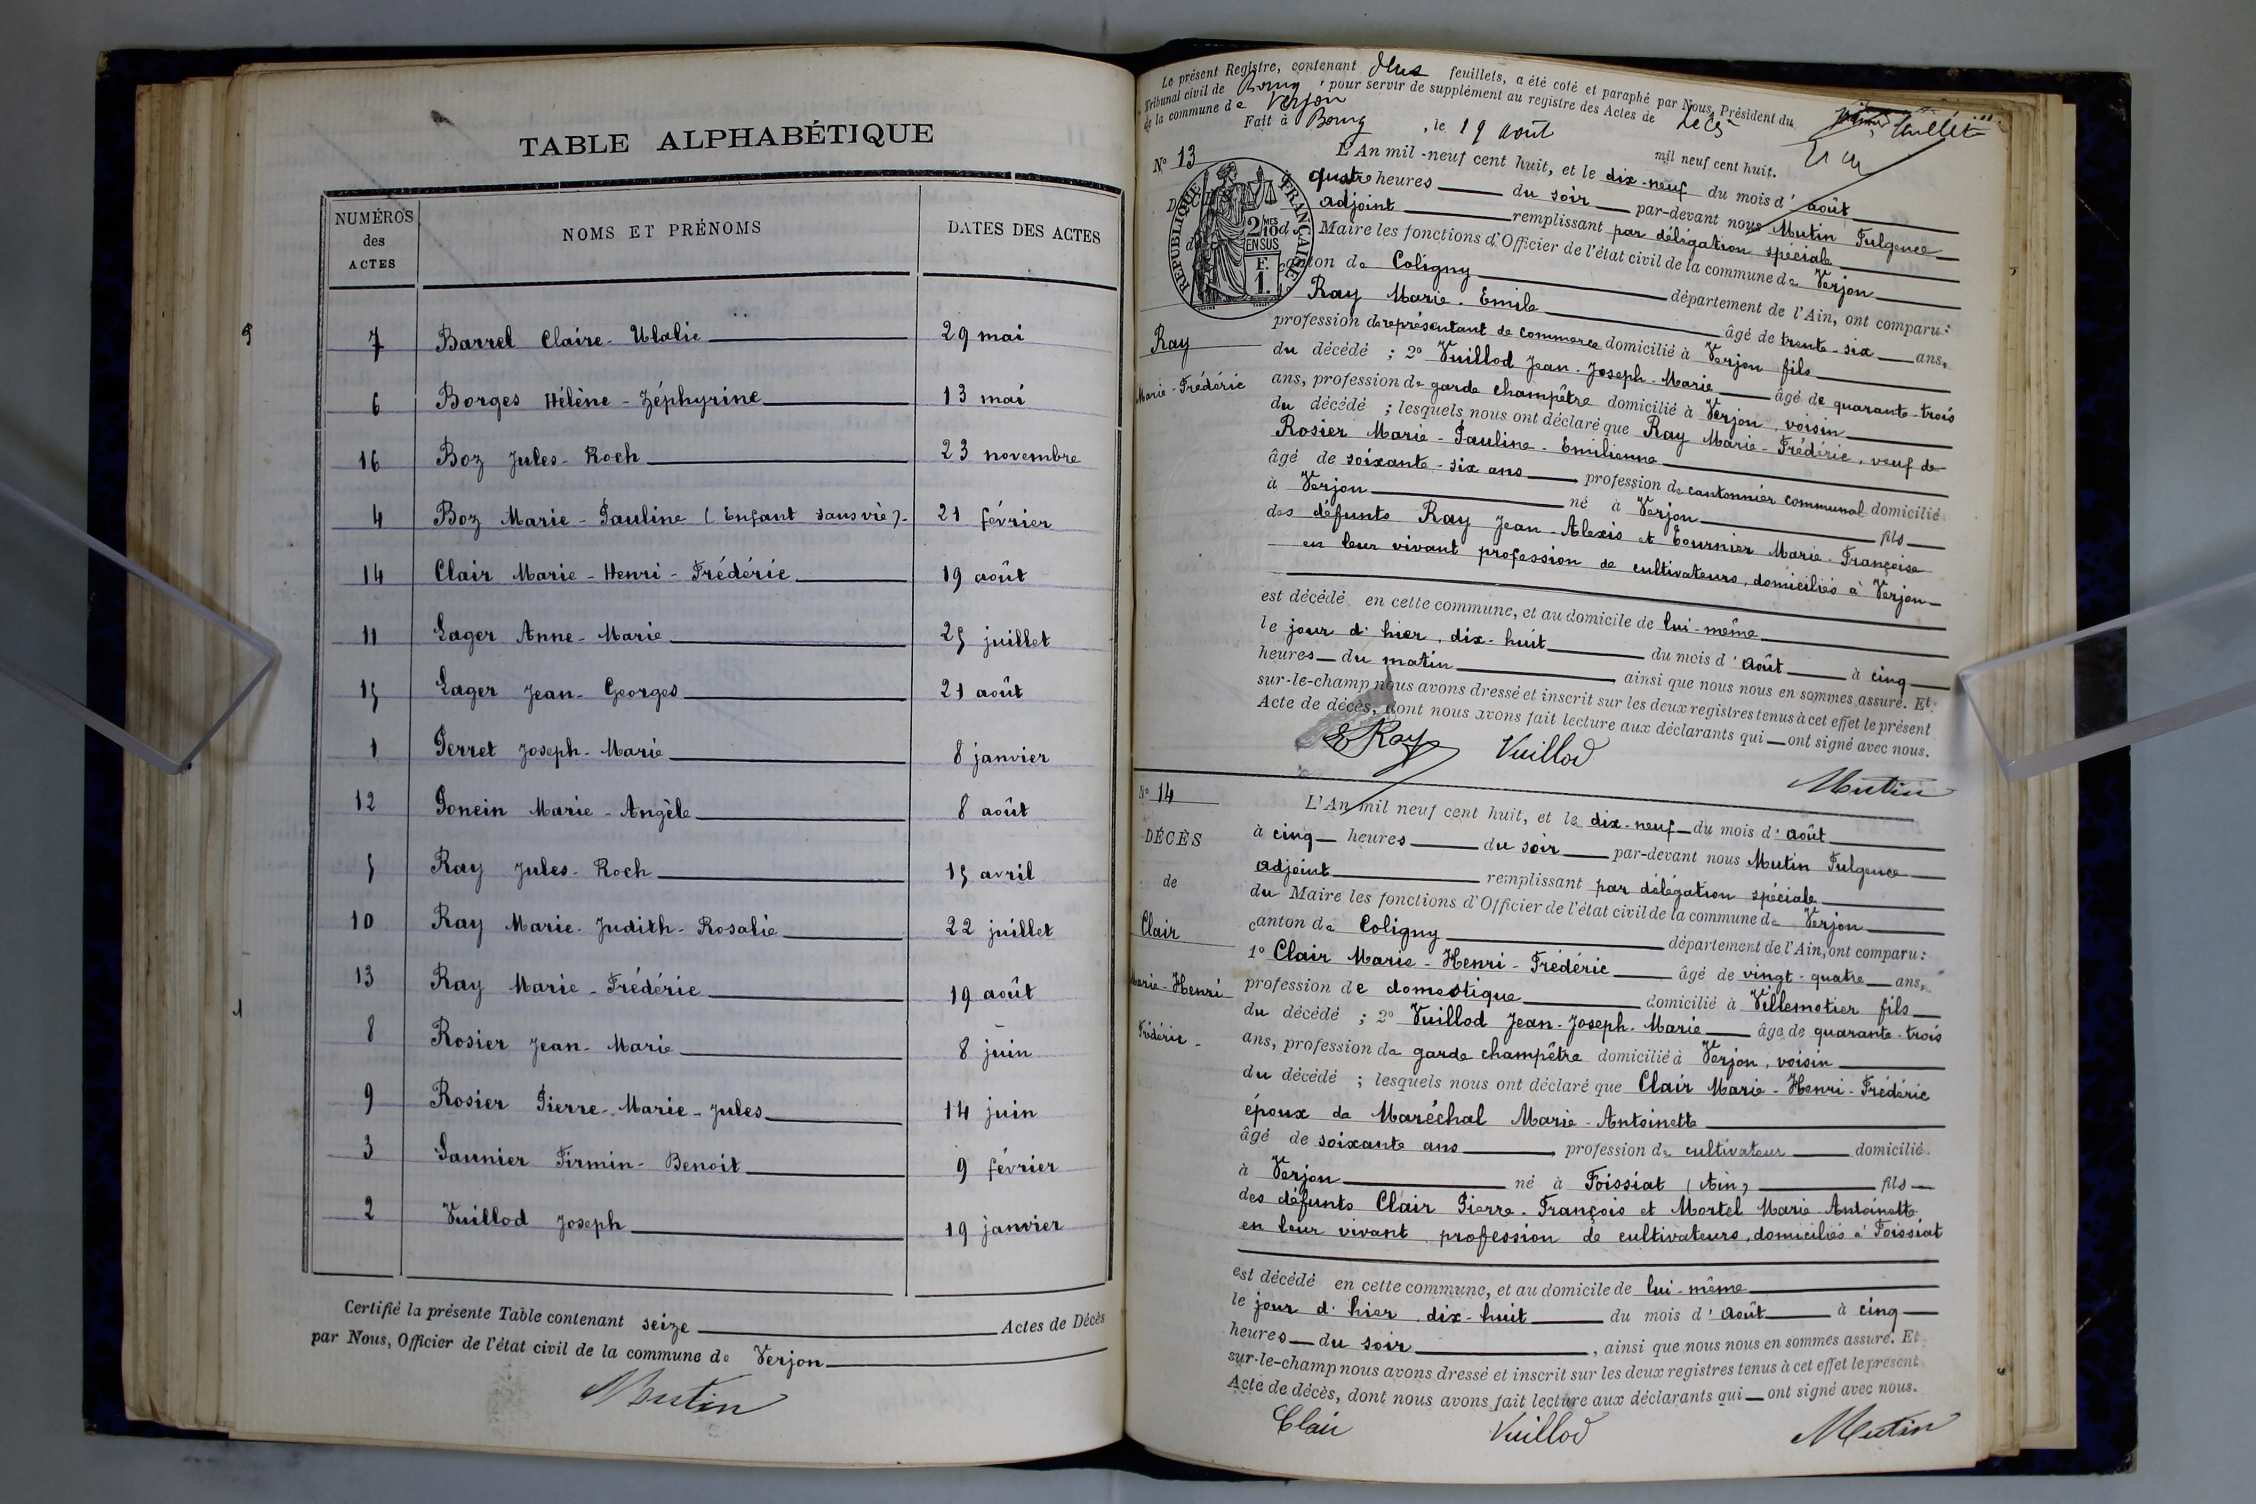 TABLE ALPHABÉTIQUE
NUMÉROS des ACTES NOMS ET PRÉNOMS DATES DES ACTES
7 Barrel Claire-Ulalie 29 mai
6 Borges Hélène-Zéphyrine 13 mai
16 Boz Jules-Roch 23 novembre
4 Boz Marie-Pauline (Enfant sans vie). 21 février
14 Clair Marie-Henri-Frédéric 19 août
11 Lager Anne-Marie 25 juillet
15 Lager Jean-Georges 21 août
1 Perret Joseph-Marie 8 janvier
12 Ponein Marie-Angèle 8 août
5 Ray Jules-Roch 15 avril
10 Ray Marie-Judith-Rosalie 22 juillet
13 Ray Marie-Frédéric 19 août
8 Rosier Jean-Marie 8 juin
9 Rosier Pierre-Marie-Jules 14 juin
3 Saunier Firmin-Benoit 9 février
2 Vuillod Joseph 19 janvier
Certifié la présente Table contenant seize Actes de Décès
par Nous, Officier de l'état civil de la commune de Verjon
Mutin
Le présent Registre, contenant deux feuillets, a été coté et paraphé par Nous, Président du
Tribunal civil de Bourg, pour servir de supplément au registre des Actes de décès
de la commune de Verjon
Fait à Bourg, le 19 août mil neuf cent huit.
N° 13
RÉPUBLIQUE FRANÇAISE
2/10 MES EN SUS
F. 1.
Ray
Marie-Frédéric
L'An mil-neuf cent huit, et le dix-neuf du mois d'août
quatre heures du soir par-devant nous Mutin Fulgence
adjoint remplissant par délégation spéciale
Maire les fonctions d'Officier de l'état civil de la commune de Verjon
canton de Coligny département de l'Ain, ont comparu:
Ray Marie-Emile âgé de trente-six ans,
profession de représentant de commerce domicilié à Verjon fils
du décédé ; 2° Vuillod Jean-Joseph-Marie âgé de quarante-trois
ans, profession de garde champêtre domicilié à Verjon, voisin
du décédé ; lesquels nous ont déclaré que Ray Marie-Frédéric, veuf de
Rosier Marie-Pauline-Emilienne
âgé de soixante-six ans profession de cantonnier communal domicilié
à Verjon né à Verjon fils
des défunts Ray Jean-Alexis et Tournier Marie-Françoise
en leur vivant profession de cultivateurs, domiciliés à Verjon
est décédé en cette commune, et au domicile de lui-même
le jour d'hier, dix-huit du mois d'août à cinq
heures du matin ainsi que nous nous en sommes assuré. Et
sur-le-champ nous avons dressé et inscrit sur les deux registres tenus à cet effet le présent
Acte de décès, dont nous avons fait lecture aux déclarants qui ont signé avec nous.
E Ray Vuillod Mutin
N° 14
DÉCÈS
de
Clair
Marie-Henri
Frédéric
L'An mil neuf cent huit, et le dix-neuf du mois d'août
à cinq heures du soir par-devant nous Mutin Fulgence
adjoint remplissant par délégation spéciale
du Maire les fonctions d'Officier de l'état civil de la commune de Verjon
canton de Coligny département de l'Ain, ont comparu:
1° Clair Marie-Henri-Frédéric âgé de vingt-quatre ans,
profession de domestique domicilié à Villemotier fils
du décédé ; 2° Vuillod Jean-Joseph-Marie âgé de quarante-trois
ans, profession de garde champêtre domicilié à Verjon, voisin
du décédé ; lesquels nous ont déclaré que Clair Marie-Henri-Frédéric
époux de Maréchal Marie-Antoinette
âgé de soixante ans, profession de cultivateur domicilié
à Verjon né à Foissiat (Ain) fils
des défunts Clair Pierre-François et Mortel Marie-Antoinette
en leur vivant profession de cultivateurs, domiciliés à Foissiat
est décédé en cette commune, et au domicile de lui-même
le jour d'hier dix-huit du mois d'août à cinq
heures du soir, ainsi que nous nous en sommes assuré. Et
sur-le-champ nous avons dressé et inscrit sur les deux registres tenus à cet effet le présent
Acte de décès, dont nous avons fait lecture aux déclarants qui ont signé avec nous.
Clair Vuillod Mutin